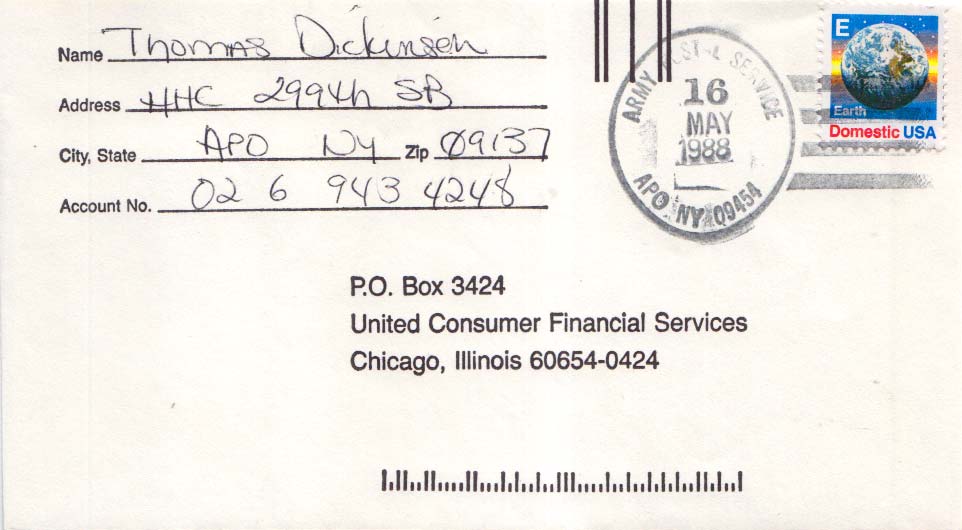 Name Thomas Dickinson
Address HHC 299th SB
City, State APO NY Zip 09137
Account No. 02 6 943 4248
ARMY POSTAL SERVICE
16
MAY
1988
APO NY 09454
E
Earth
Domestic USA
P.O. Box 3424
United Consumer Financial Services
Chicago, Illinois 60654-0424